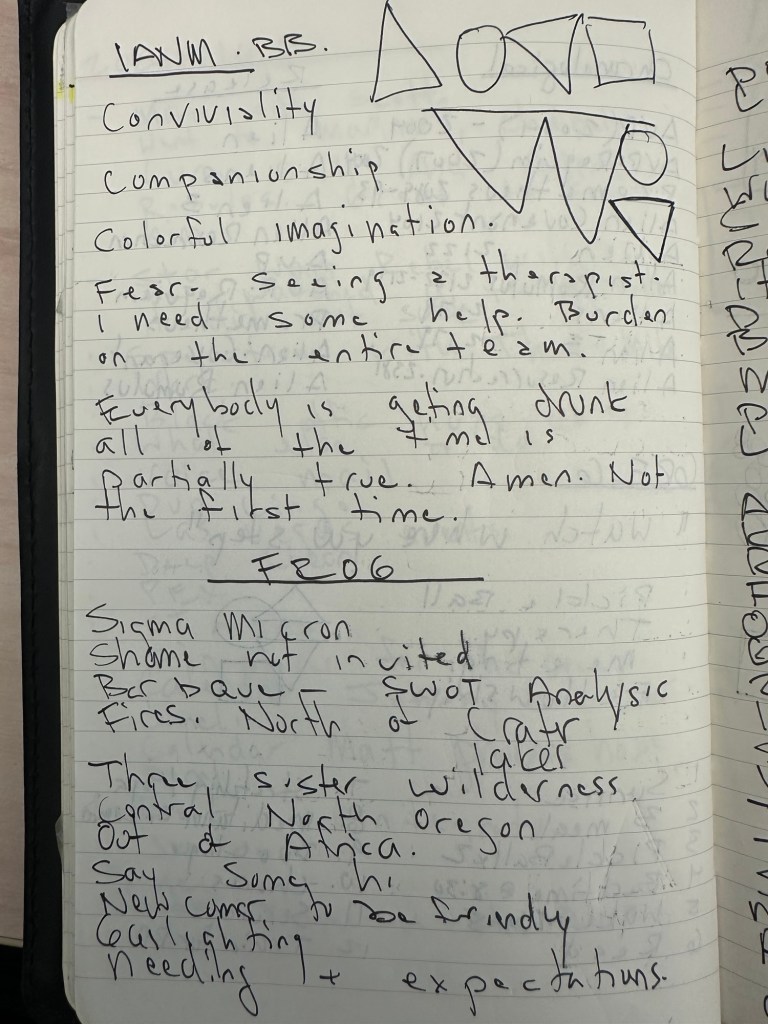 IANM. BB.
Conviviality
Companionship
Colorful imagination.
Fear- seeing a therapist.
I need some help. Burden
on the entire team.
Everybody is geting drunk
all of the time is
partially true. Amen. Not
the first time.
F206
Sigma Micron
Shame not invited
Barbaque - SWOT Analysic
Fires. North of Cratr
lakes
Three sister wilderness
Central North Oregon
Out of Africa.
Say Some hi
New comer to be frindly
Gaslighting
Needing 1+ expectations.